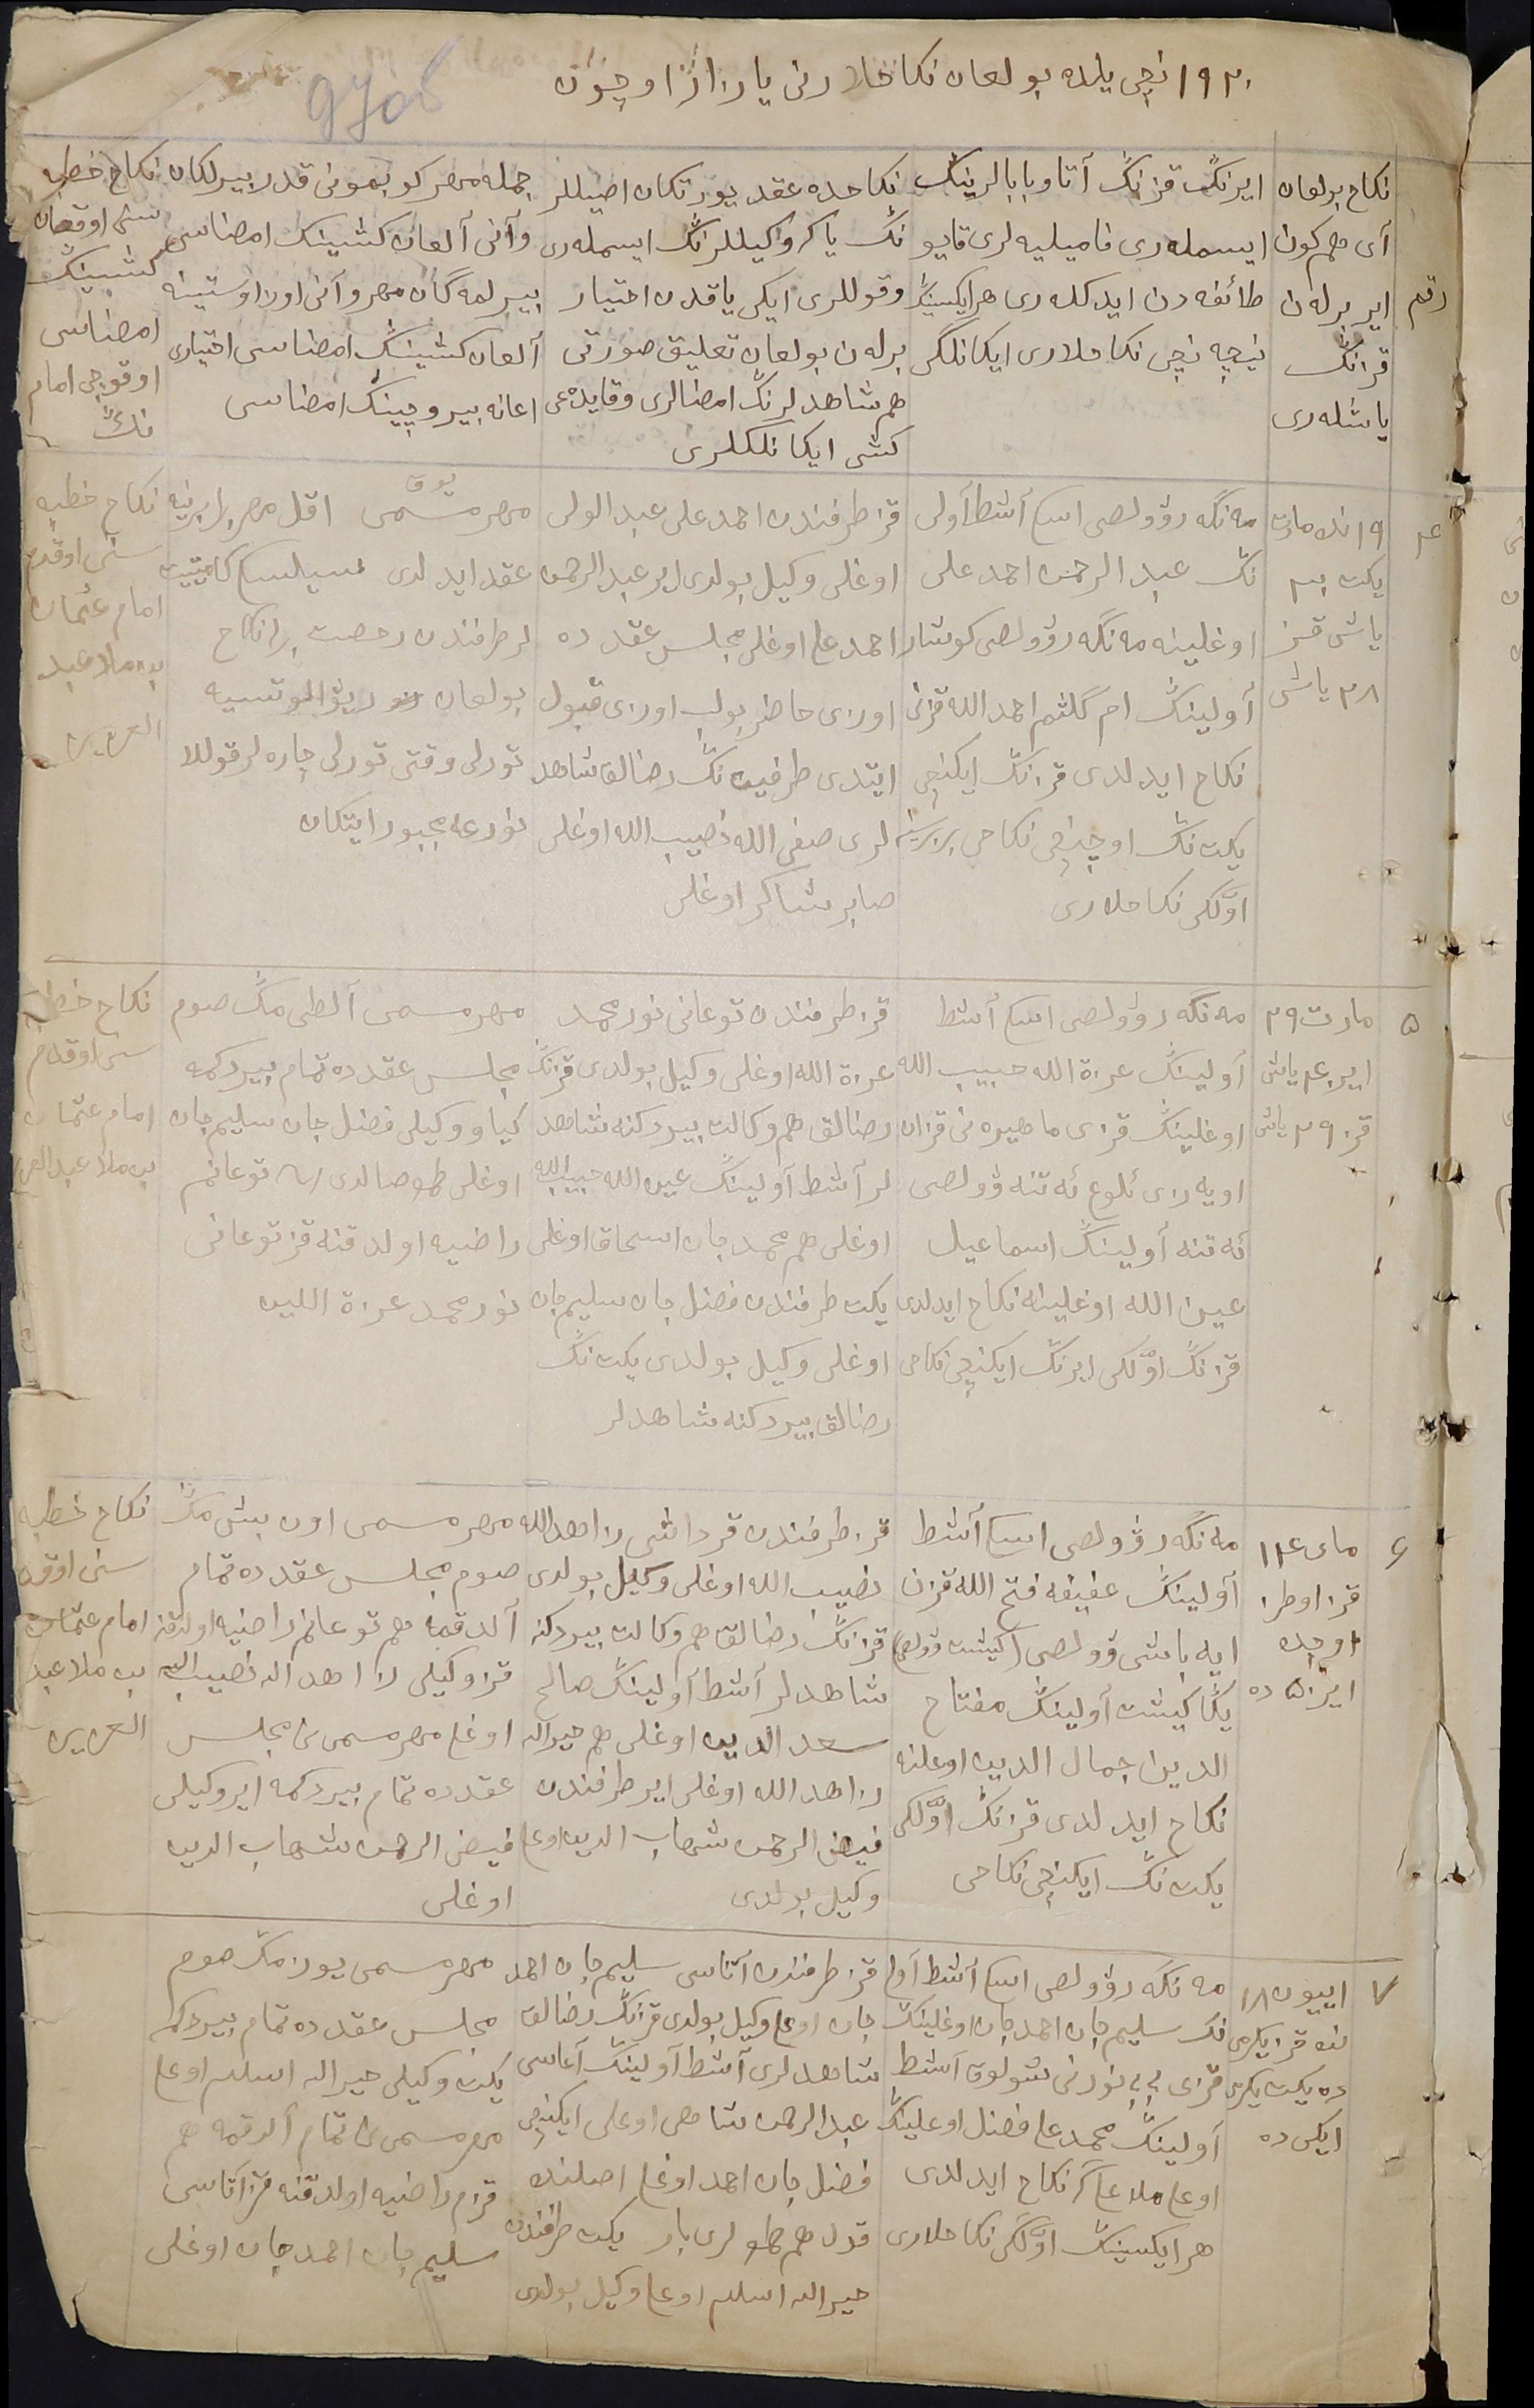 ١٩٢٠ نچی یلده بولعان نکاحلارنی یازار اوچون
رقم
نکاح بولعان
آی هم کون
ایر برله ن
قزننک
یاشله ری
ایرنک قزننک آتا و بابالرینک
ایسمله ری فامیلیه لری قایو
طائفه دن ایدکله ری هر ایکیسینک
نیچه نچی نکاحلاری ایکانلگی
نکاحده عقد یورتکان اصیللر
نک یاکه وکیللرنک ایسمله ری
وقوللری ایکی یاقدن اختیار
برله ن بولعان تعلیق صورتی
هم شاهدلرنک امضالری وقایده عی
کشی ایکانلکلری
جمله مهر کو بمونی قدر بیرلکان
وآنی آلعان کشینک امضاسی
بیرلمه گان مهر وآنی اوز اوستینه
آلعان کشینک امضاسی اختیاری
اعانه بیروچینک امضاسی
نکاح خطبه
سنی اوقعان
کشینک
امضاسی
اوقوچی امام
ننک
٤
١٩ نده مارت
یکت
یاش قز
٢٨ یاش
مه نگه رؤولصی آشط آولی
ننک عبد الرحمن احمد علی
اوغلینه مه نگه رؤولصی کوشار
آولینک ام گلثم احمد الله قزنی
نکاح ایدلدی قزننک ایکنچی
یکت ننک اوچنچی نکاحی
اوّلکی نکاحلاری
قز طرفندن احمد علی عبد الولی
اوغلی وکیل بولدی ایر عبد الرحمن
احمد علی اوغلی مجلس عقدده
اوزی حاضر بولب اوزی قبول
ایتدی طرفین ننک رضالق شاهد
لری صفی الله نصیب الله اوغلی
صابر شاکر اوغلی
یوق
مهر مسمی اقل مهر
عقد ایدلدی
لر طرفندن رخصت نکاح
بولعان
تورلی وقتی تورلی چاره لر قوللا
نورعه مجبور ایتکان
نکاح خطبه
سنی اوقدم
امام عثمان
بن ملا عبد
العزیز
٥
مارت ٢٩
ایر یاش
قز ٢٩ یاش
مه نگه رؤولصی آشط
آولینک عزة الله حبیب الله
اوغلینک قزی ماهیره نی قزان
اویه زی ئلوع ئه تنه ؤولصی
ئه تنه آولینک اسماعیل
عین الله اوغلینه نکاح ایدلدی
قزننک اوّلکی ایرنک ایکنچی نکاحی
قز طرفندن توعانی نور محمد
عزة الله اوغلی وکیل بولدی قزننک
رضالق هم وکالت بیردکنه شاهد
لر آشط آولینک عین الله حبیب الله
اوغلی هم محمد جان اسحاق اوغلی
یکت طرفندن فضل جان سلیم جان
اوغلی وکیل بولدی یکت ننک
رضالق بیردکنه شاهدلر
مهر مسمی آلطی مک صوم
مجلس عقدده تمام بیردکمه
کیاو وکیلی فضل جان سلیم جان
اوغلی توعانم
راضیه اولدقنه قز توعانی
نور محمد عزة اللین
نکاح خطبه
سنی اوقدم
امام عثمان
بن ملا عبد العزیز
٦
مای ١٣
قز اوطز
اوچده
ایر ٥١ ده
مه نگه رؤولصی آشط
آولینک عفیفه فتح الله قزن
ایه باشی ؤولصی (کیشت ؤولصی)
یکا کیشت آولینک مفتاح
الدین جمال الدین اوعلنه
نکاح ایدلدی قزننک اوّلکی
یکت ننک ایکنچی نکاحی
قز طرفندن قرداشی زاهد الله
نصیب الله اوغلی وکیل بولدی
قزننک رضالق هم وکالت بیردکنه
شاهدلر آشط آولینک صالح
سعد الدین اوغلی هم خیر الله
زاهد الله اوغلی ایر طرفندن
فیض الرحمن شهاب الدین اوغلی
وکیل بولدی
مهر مسمی اون بیش مک
صوم مجلس عقدده تمام
آلدقمه هم توعانم راضیه اولدقنه
قز وکیلی زاهد الله نصیب الله
اوغلی مهر مسمی نی مجلس
عقدده تمام بیردکمه ایر وکیلی
فیض الرحمن شهاب الدین
اوغلی
نکاح خطبه
سنی اوقدم
امام عثمان
بن ملا عبد
العزیز
٧
اییون ١٨
نده قز یکرمی
ده یکت یکرمی
ایکی ده
مه نگه رؤولصی آشط آولی
ننک سلیم جان احمد جان اوغلینک
قزی بی بی نورنی شولوق آشط
آولینک محمد علی فضل اوعلینک
اوغلی ملا نکاح ایدلدی
هر ایکیسینک اوّلکی نکاحلاری
قز طرفندن آتاسی سلیم جان احمد
جان اوغلی وکیل بولدی قزننک رضالق
شاهدلری آشط آولینک آعاسی
عبد الرحمن اوغلی ایکنچی
فضل جان احمد اوغلی اصلنده
قدل هم لری بار یکت طرفندن
خیر الله اوغلی وکیل بولدی
مهر مسمی یوز مک صوم
مجلس عقدده تمام بیردکمه
یکت وکیلی خیر الله اوغلی
مهر مسمی نی تمام آلدقمه هم
قزم راضیه اولدقنه قز آتاسی
سلیم جان احمد جان اوغلی